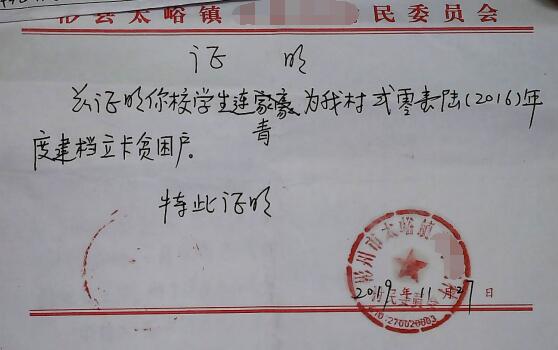 彬县太峪镇 民委员会
证 明
兹证明你校学生连 豪为我村弍零壹陆(2016)年
青
度建档立卡贫困户。
特此证明
彬州市太峪镇 村
2019年11月27日
村民委员会
ID:270020003